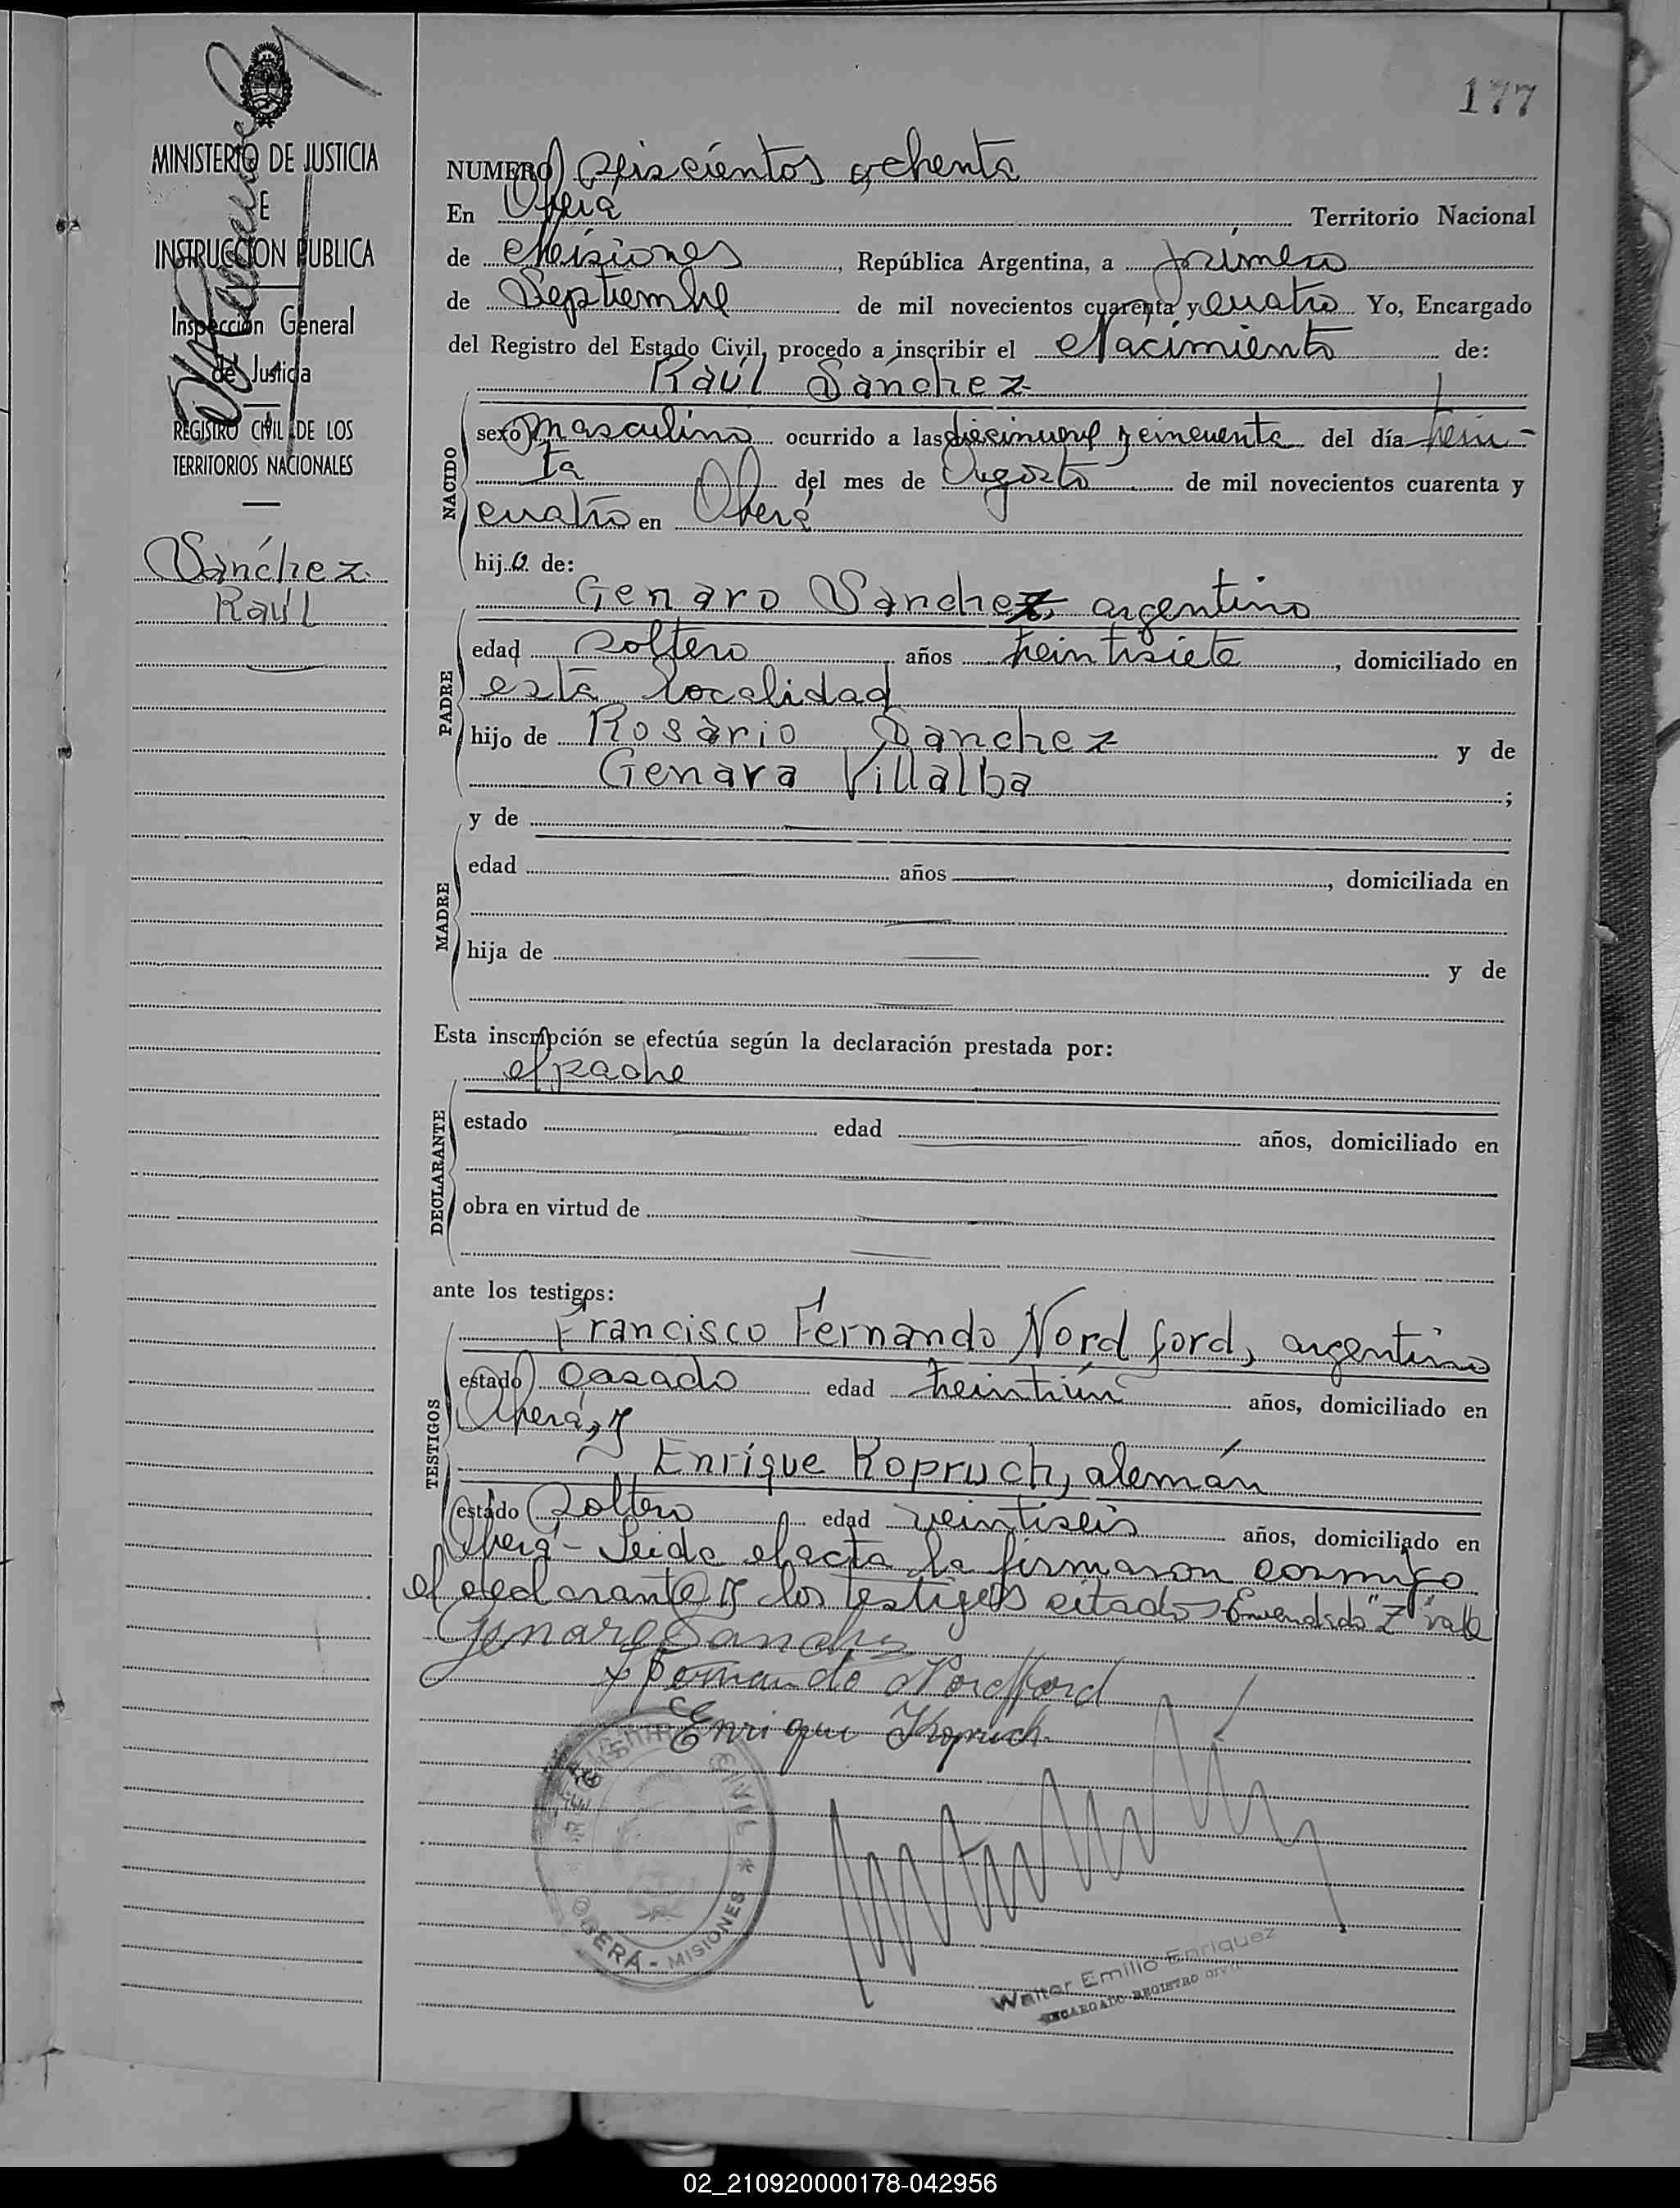 177
MINISTERIO DE JUSTICIA
E
INSTRUCCION PUBLICA
Inspección General
de Justicia
REGISTRO CIVIL DE LOS
TERRITORIOS NACIONALES
Sánchez
Raúl
NUMERO Seiscientos ochenta
En Oberá Territorio Nacional
de Misiones, República Argentina, a primero
de Septiembre de mil novecientos cuarenta y cuatro Yo, Encargado
del Registro del Estado Civil, procedo a inscribir el Nacimiento de:
Raúl Sánchez
NACIDO
sexo masculino ocurrido a las diecinueve y cincuenta del día trein-
ta del mes de Agosto de mil novecientos cuarenta y
cuatro en Oberá
hijo de:
Genaro Sanchez, argentino
PADRE
edad soltero años treintisiete, domiciliado en
esta localidad
hijo de Rosario Sanchez y de
Genara Villalba;
y de
MADRE
edad años, domiciliada en
hija de y de
Esta inscripción se efectúa según la declaración prestada por:
el padre
DECLARANTE
estado edad años, domiciliado en
obra en virtud de
ante los testigos:
Francisco Fernando Nordford, argentino
TESTIGOS
estado casado edad treintiún años, domiciliado en
Oberá, y
Enrique Kopruch, alemán
estado soltero edad veintiseis años, domiciliado en
Oberá - Leida el acta la firmaron conmigo
el declarante y los testigos citados - Enmendado "Z" vale
Genaro Sanches
Fernando Nordford
Enrique Kopruch
REGISTRO CIVIL * OBERÁ - MISIONES
Walter Emilio Enriquez
ENCARGADO REGISTRO CIVIL
02_210920000178-042956